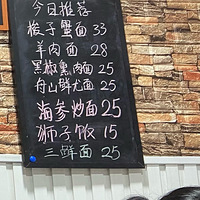 今日推荐
梭子蟹面33
羊肉面 28
黑椒熏肉面25
舟山鲜尤面25
海参炒面25
狮子饭15
三鲜面 25